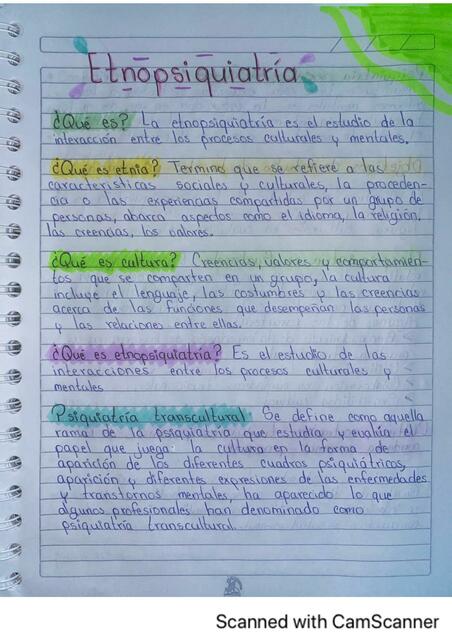 Etnopsiquiatría
¿Qué es? La etnopsiquiatría es el estudio de la
interacción entre los procesos culturales y mentales.
¿Qué es etnia? Termino que se refiere a las
características sociales y culturales, la proceden-
cia o las experiencias compartidas por un grupo de
personas, abarca aspectos como el idioma, la religión,
las creencias, los valores.
¿Qué es cultura? Creencias, valores y comportamien-
tos que se comparten en un grupo, la cultura
incluye el lenguaje, las costumbres y las creencias
acerca de las funciones que desempeñan las personas
y las relaciones entre ellas.
¿Qué es etnopsiquiatría? Es el estudio de las
interacciones entre los procesos culturales y
mentales
Psiquiatría transcultural: Se define como aquella
rama de la psiquiatría que estudia y evalúa el
papel que juega la cultura en la forma de
aparición de los diferentes cuadros psiquiátricos,
aparición y diferentes expresiones de las enfermedades
y transtornos mentales, ha aparecido lo que
algunos profesionales han denominado como
psiquiatría transcultural.
Scanned with CamScanner